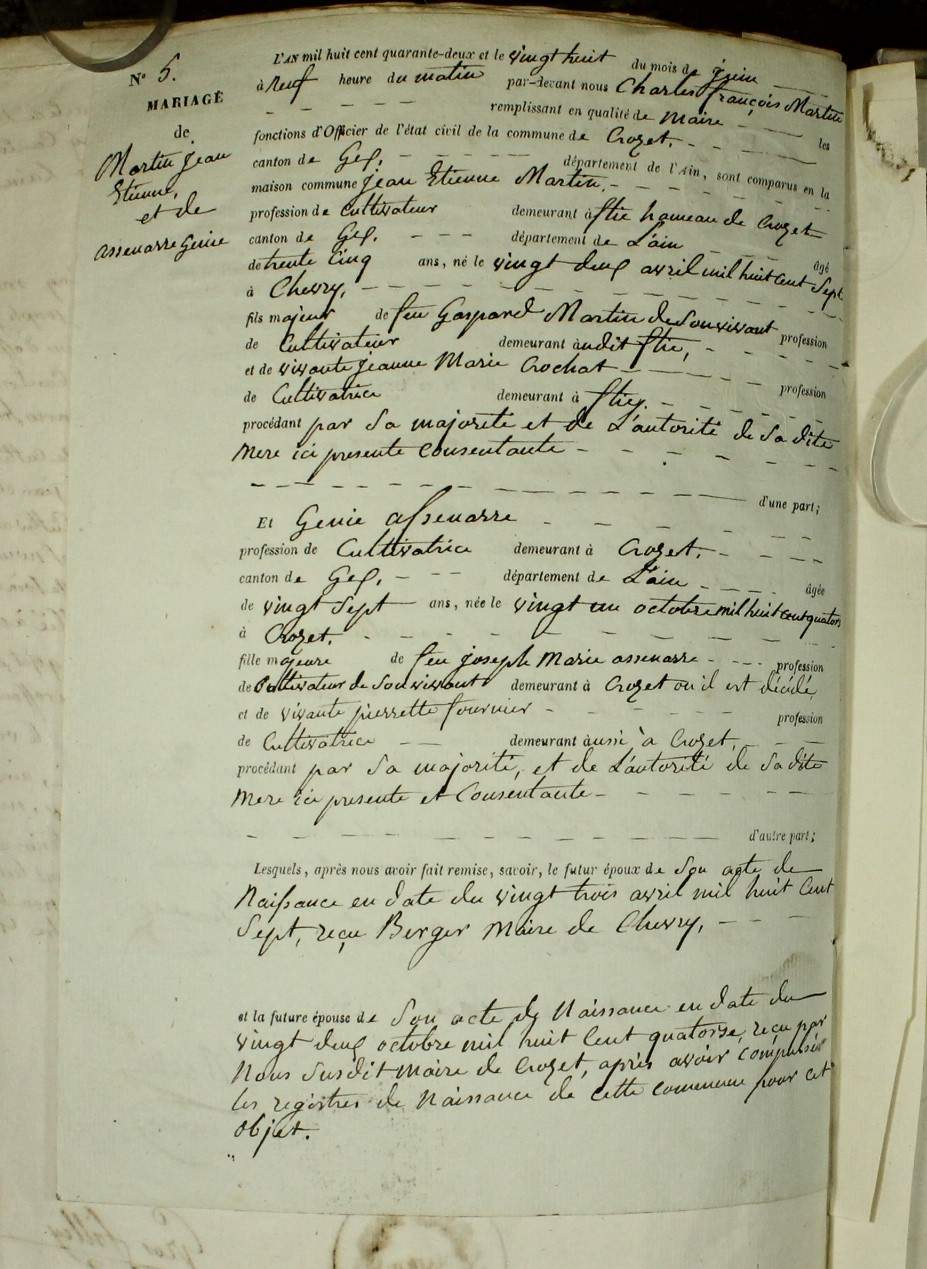 N° 5.
MARIAGE
de
Martin Jean
Etienne,
et de
assenarre Genie
L'AN mil huit cent quarante-deux et le vingt huit du mois de juin
à Neuf heure du matin par-devant nous Charles françois Martin
remplissant en qualité de Maire les
fonctions d'Officier de l'état civil de la commune de Crozet.
canton de Gex. département de l'Ain, sont comparus en la
maison commune Jean Etienne Martin,
profession de Cultivateur demeurant à flie hameau de Crozet
canton de Gex. département de L'ain âgé
de trente Cinq ans, né le vingt deux avril mil huit cent Sept
à Chevry,
fils majeur de feu Gaspard Martin de Son vivant profession
de Cultivateur demeurant audit flie,
et de vivante Jeanne Marie Crochat profession
de Cultivatrice demeurant à fliez.
procédant par Sa majorité et de L'autorité de Sa dite
Mere ici presente Consentante
d'une part;
Et Genie assenarre
profession de Cultivatrice demeurant à Crozet.
canton de Gex. département de L'ain âgée
de vingt Sept ans, née le vingt un octobre mil huit cent quators
à Crozet.
fille majeure de feu joseph Marie assenarre profession
de Cultivateur de Son vivant demeurant à Crozet où il est décédé
et de vivante pierrette fournier profession
de Cultivatrice demeurant aussi à Crozet,
procédant par Sa majorité, et de L'autorité de Sa dite
Mere ici presente et Consentante
d'autre part;
Lesquels, après nous avoir fait remise, savoir, le futur époux de Son acte de
Naissance en date du vingt trois avril mil huit Cent
Sept, reçu Berger Maire de Chevry,
et la future épouse de Son acte de Naissance en date du
vingt deux octobre mil huit Cent quatorse, reçu par
Nous Susdit Maire de Crozet, après avoir compulsé
les registres de Naissance de cette commune pour cet
objet.